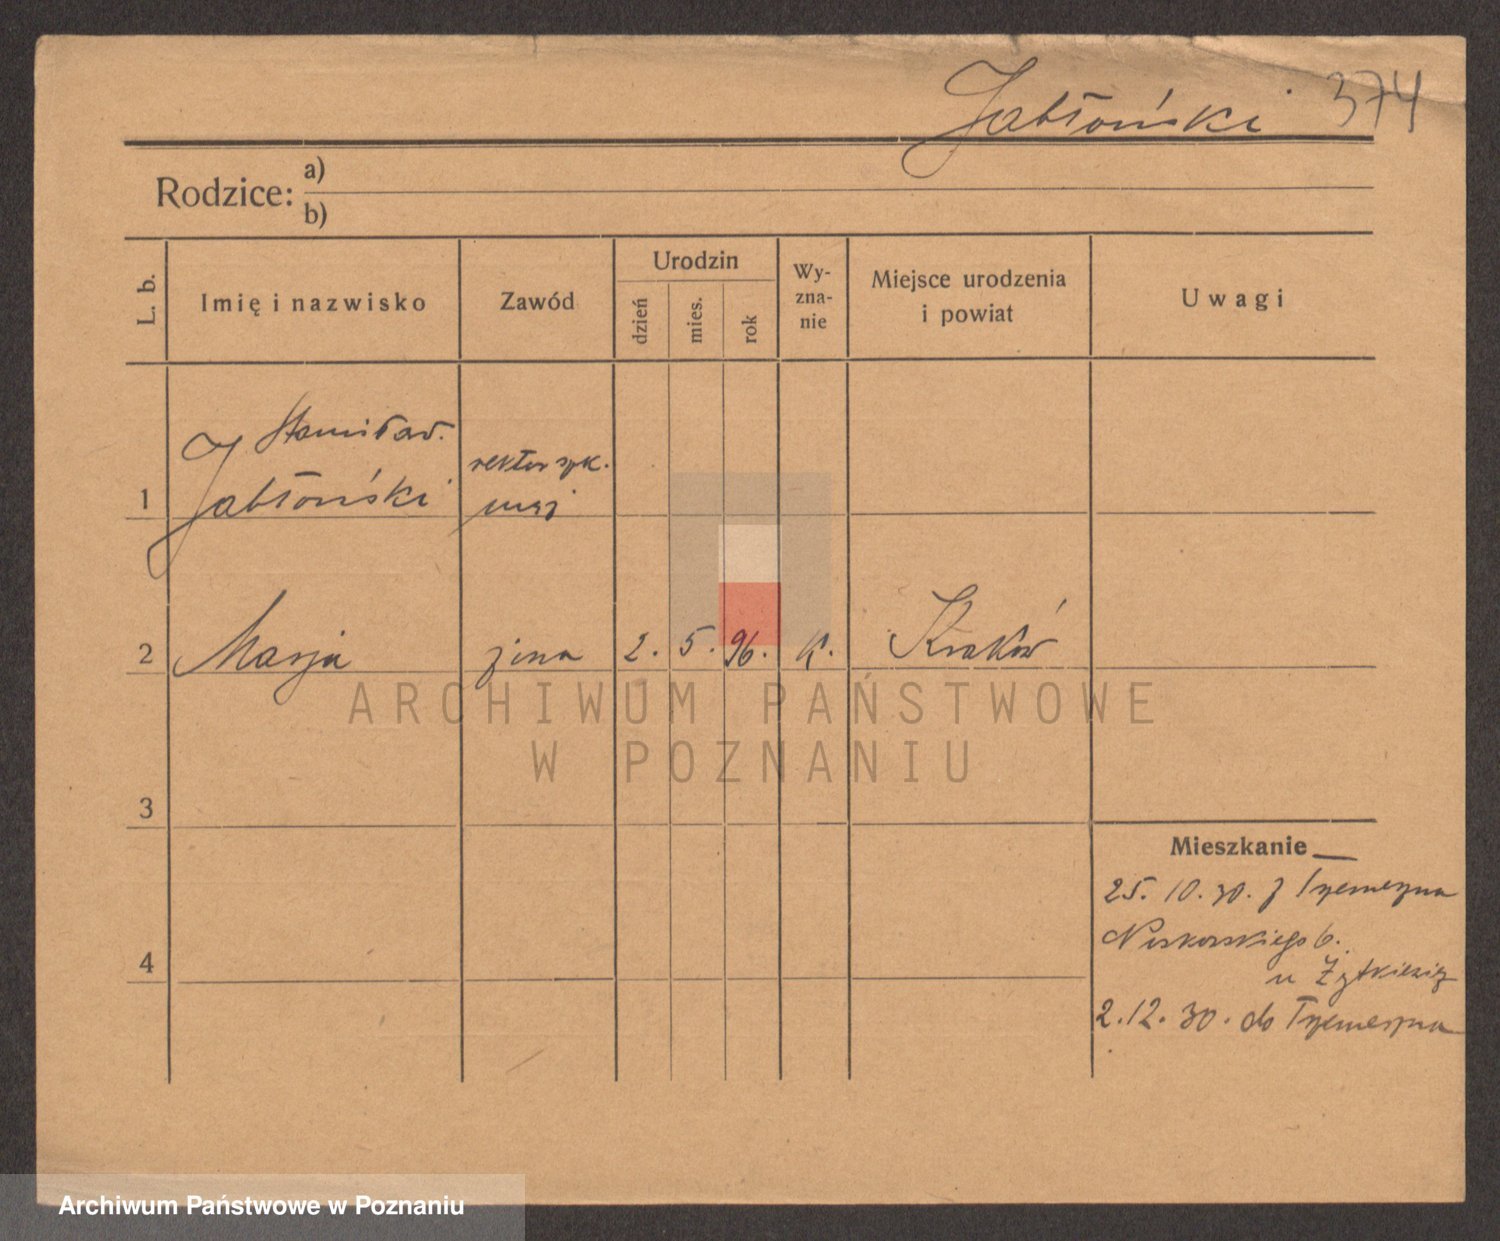 Jabłoński 374
Rodzice: a)
b)
L. b.
Imię i nazwisko
Zawód
Urodzin
dzień
mies.
rok
Wy-
zna-
nie
Miejsce urodzenia
i powiat
Uwagi
Stanisław.
1 Jabłoński
rektor szk.
mąż
2 Marja żona 2. 5. 96. K. Kraków
ARCHIWUM PAŃSTWOWE
W POZNANIU
3
Mieszkanie
25. 10. 30. z Trzemeszna
4
6.
u
2. 12. 30. do Trzemeszna
Archiwum Państwowe w Poznaniu